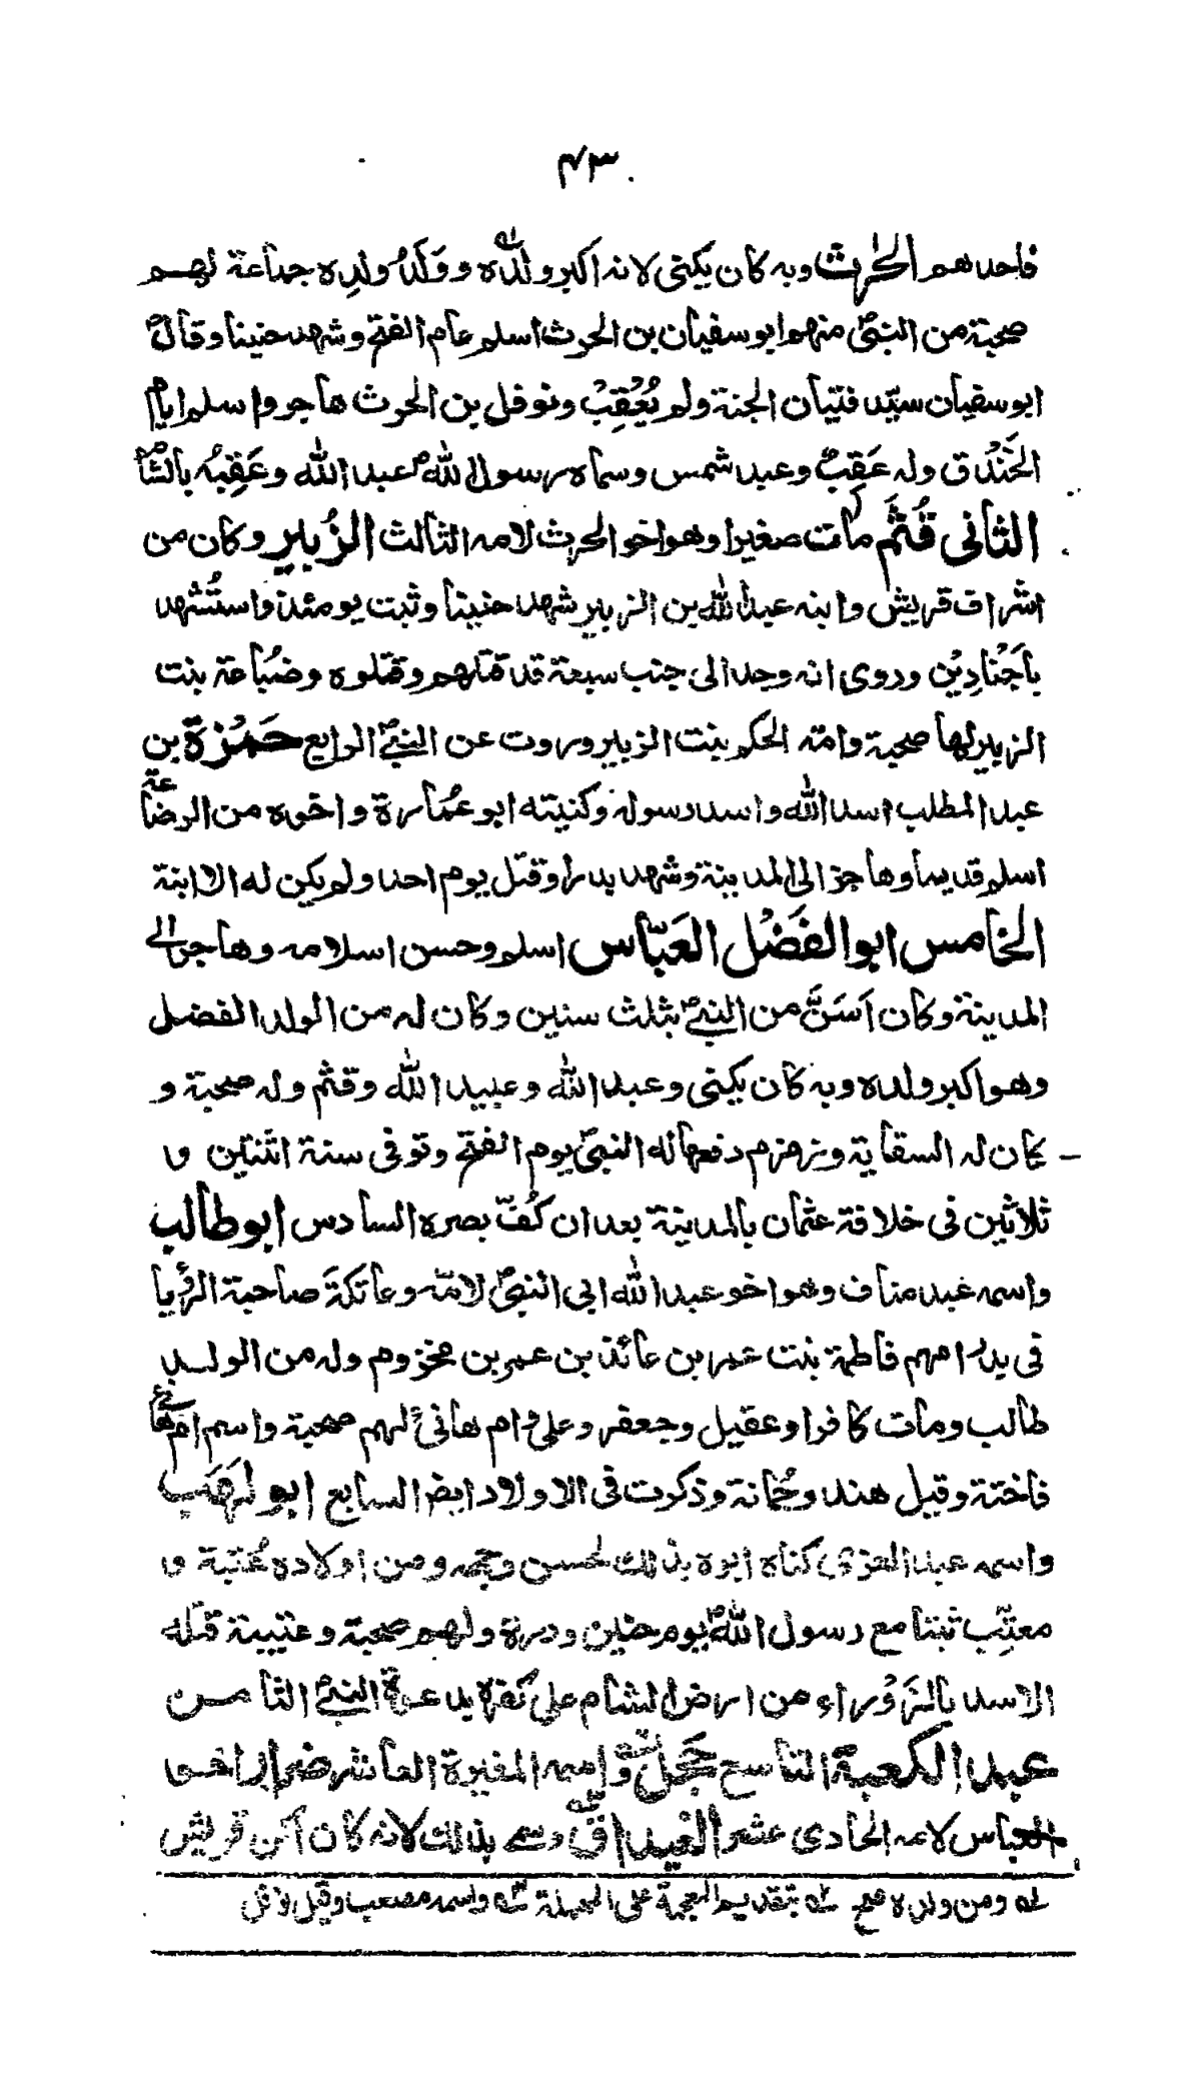 ٤٣
فاحدهم الحٰرث وبه كان يكنى لانه اكبر ولده ووَلَدُ ولدِه جماعة لهم
صحبة من النبيؐ منهم ابو سفيان بن الحرث اسلم عام الفتح وشهد حنينا وقالؐ
ابو سفيان سيّد فتيان الجنة ولم يُعْقِبْ ونوفل بن الحرث هاجر واسلم ايام
الخَنْدَق وله عَقِبٌ وعبد شمس وسماه رسول اللهؐ عبد الله وعَقِبُه بالشام
الثانى قُثَم مات صغيرا وهو اخو الحرث لامه الثالث الزُبير وكان من
اشراف قريش وابنه عبد الله بن الزبير شهد حنينا وثبت يومئذ واستُشْهد
باَجْنادِيْن وروى انه وجد الى جنب سبعة قد قتلهم وقتلوه وضُباعة بنت
الزبير لها صحبة وامّه الحكم بنت الزبير وروت عن النبيؐ الرابع حَمْزة بن
عبد المطلب اسد الله واسد رسوله وكنيته ابو عُمارة واخوه من الرضاعة
اسلم قديما وهاجر الى المدينة وشهد بدرا وقتل يوم احد ولم يكن له الا ابنة
الخامس ابو الفَضْل العَبّاس اسلم وحسن اسلامه وهاجر الى
المدينة وكان اَسَنَّ من النبيؐ بثلث سنين وكان له من الولد الفضل
وهو اكبر ولده وبه كان يكنى وعبد الله وعبيد الله وقثم وله صحبة و
كان له السقاية وزمزم دفعها له النبيؐ يوم الفتح وتوفى سنة اثنتين و
ثلاثين فى خلافة عثمان بالمدينة بعد ان كُفّ بصره السادس ابو طالب
واسمه عبد مناف وهو اخو عبد الله ابى النبيؐ لامّه وعاتكة صاحبة الرؤيا
فى بدر امهم فاطمة بنت عمر بن عائذ بن عمر بن مخزوم وله من الولد
طالب ومات كافرا وعقيل وجعفر وعلىؓ وام هانئ لهم صحبة واسم ام هانئ
فاختة وقيل هند وجُمانة وذكرت فى الاولاد ايضا السابع ابو لَهَب
واسمه عبد العزى كناه ابوه بذلك لحسن وجهه ومن اولاده عُتبة و
معتِّب ثبتا مع رسول اللهؐ يوم حنين ودرة ولهم صحبة وعتيبة قتله
الاسد بالزَوْراء من ارض الشام على كفره بدعوة النبيؐ الثامن
عبد الكعبة التاسع جَحل واسمه المغيرة العاشر ضرار اخو
العباس لامه الحادى عشر الغيداق وسمى بذلك لانه كان اكرن قريش
له ومن ولده صح له بتقديم المعجمة على المهملة له واسمه مصعب وقيل نوفل